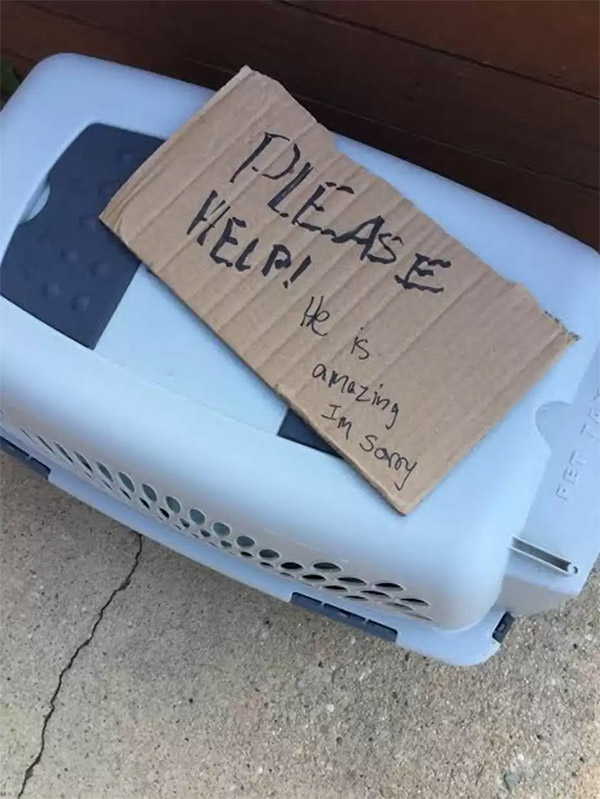 PLEASE
HELP!
He is
amazing
Im sorry
PET TAXI